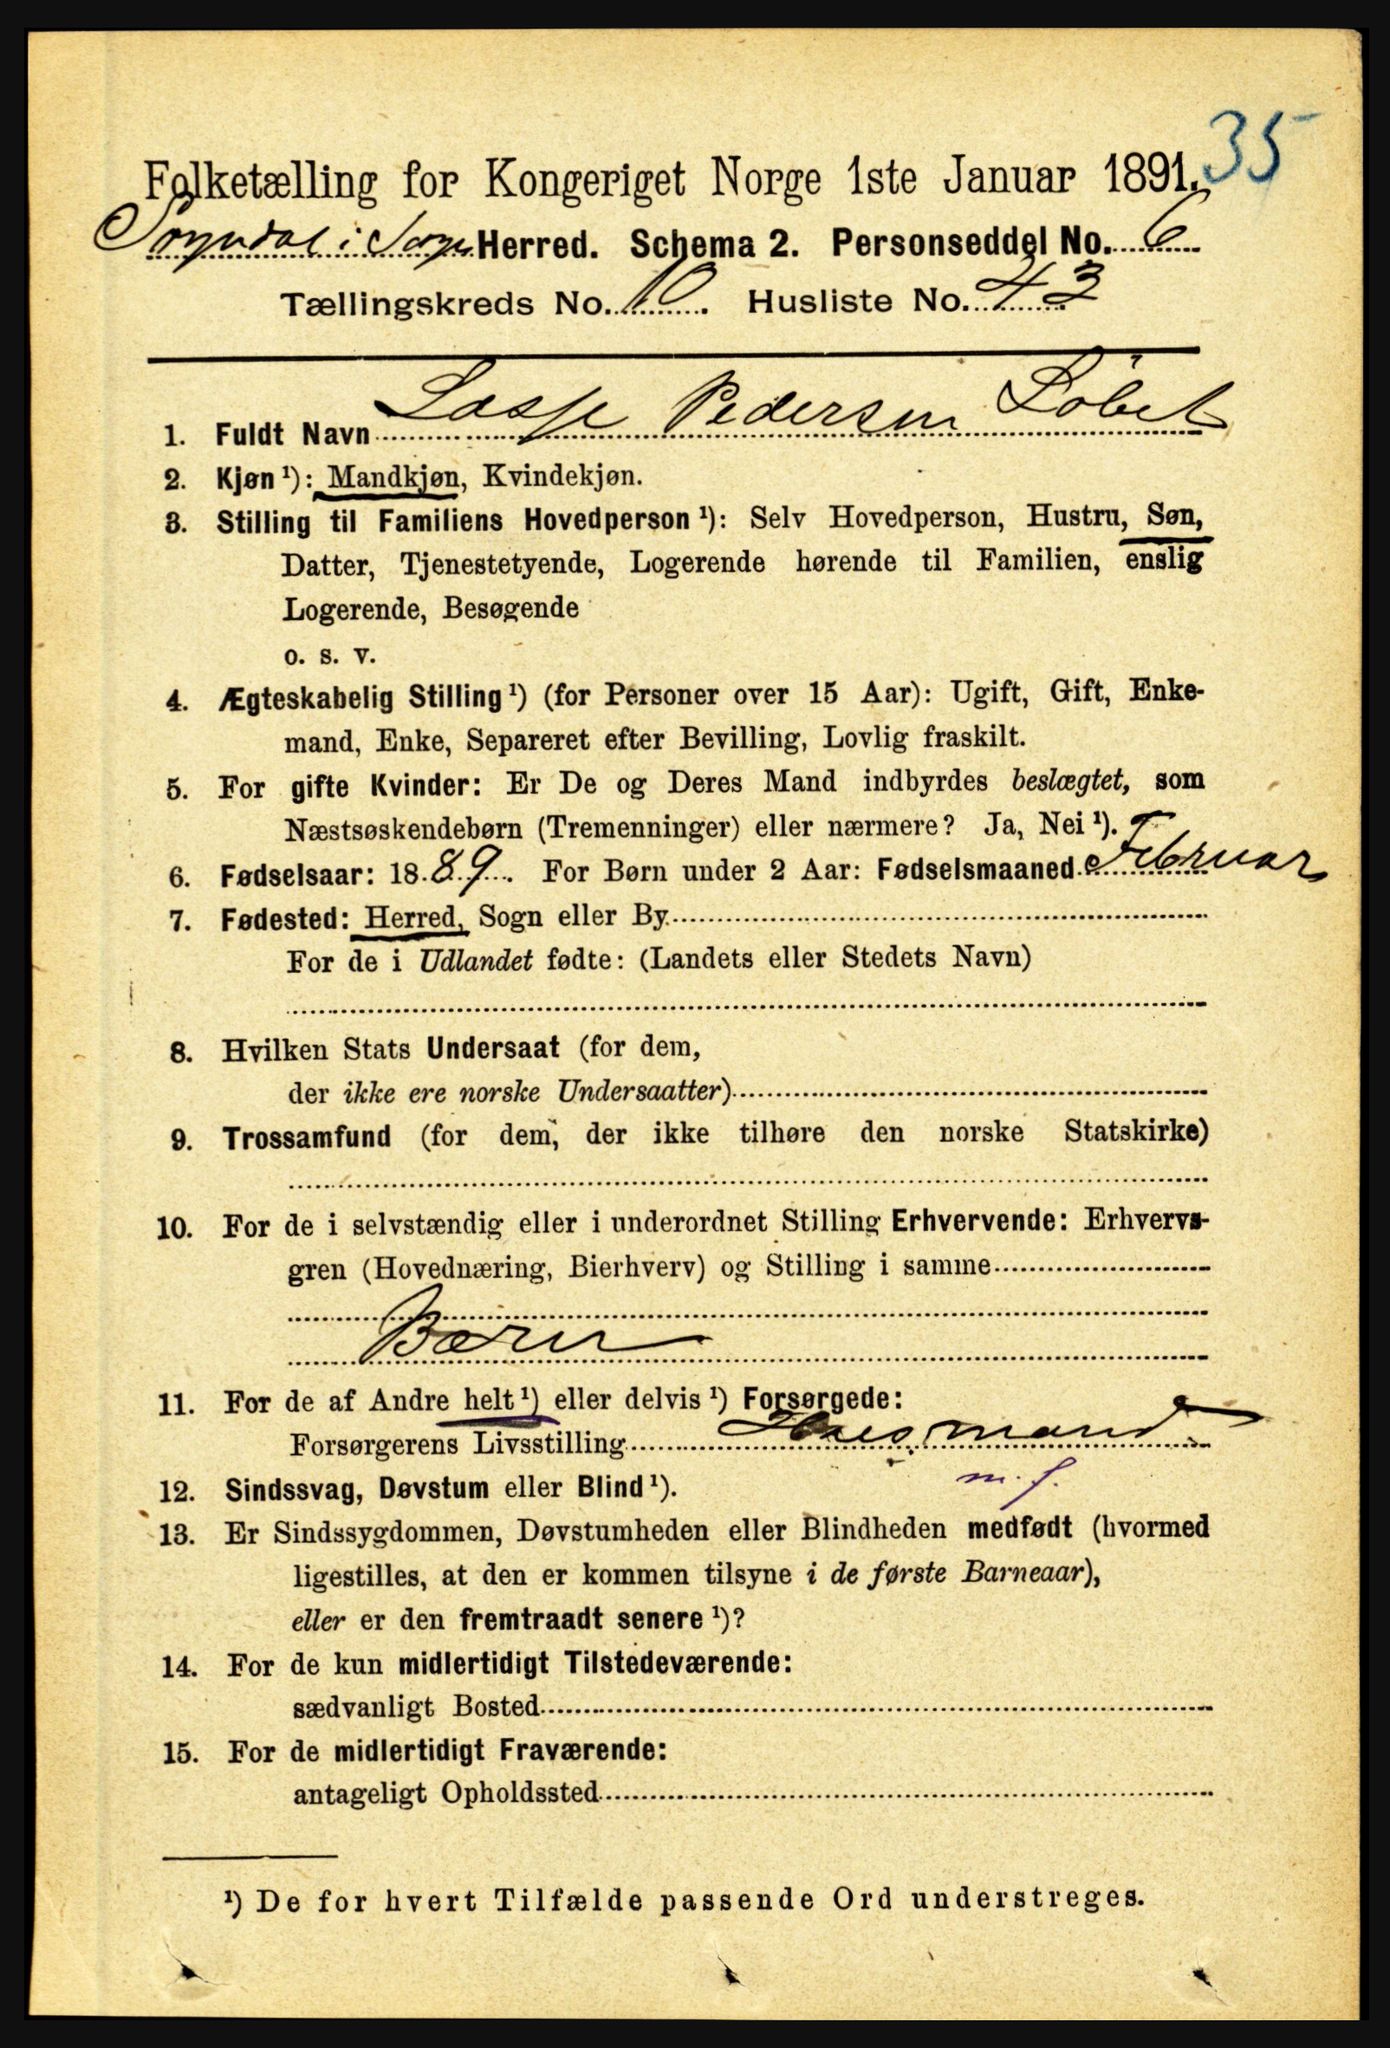 35
Folketælling for Kongeriget Norge 1ste Januar 1891.
Sogndal i Sogn Herred. Schema 2. Personseddel No. 6
Tællingskreds No. 10. Husliste No. 43
1. Fuldt Navn Lasse Pedersen Løbet
2. Kjøn ¹): Mandkjøn, Kvindekjøn.
3. Stilling til Familiens Hovedperson ¹): Selv Hovedperson, Hustru, Søn,
Datter, Tjenestetyende, Logerende hørende til Familien, enslig
Logerende, Besøgende
o. s. v.
4. Ægteskabelig Stilling ¹) (for Personer over 15 Aar): Ugift, Gift, Enke-
mand, Enke, Separeret efter Bevilling, Lovlig fraskilt.
5. For gifte Kvinder: Er De og Deres Mand indbyrdes beslægtet, som
Næstsøskendebørn (Tremenninger) eller nærmere? Ja, Nei ¹).
6. Fødselsaar: 1889. For Børn under 2 Aar: Fødselsmaaned Februar
7. Fødested: Herred, Sogn eller By
For de i Udlandet fødte: (Landets eller Stedets Navn)
8. Hvilken Stats Undersaat (for dem,
der ikke ere norske Undersaatter)
9. Trossamfund (for dem, der ikke tilhøre den norske Statskirke)
10. For de i selvstændig eller i underordnet Stilling Erhvervende: Erhvervs-
gren (Hovednæring, Bierhverv) og Stilling i samme
Børn
11. For de af Andre helt ¹) eller delvis ¹) Forsørgede:
Forsørgerens Livsstilling Husmand
m. j.
12. Sindssvag, Døvstum eller Blind ¹).
13. Er Sindssygdommen, Døvstumheden eller Blindheden medfødt (hvormed
ligestilles, at den er kommen tilsyne i de første Barneaar),
eller er den fremtraadt senere ¹)?
14. For de kun midlertidigt Tilstedeværende:
sædvanligt Bosted
15. For de midlertidigt Fraværende:
antageligt Opholdssted
¹) De for hvert Tilfælde passende Ord understreges.